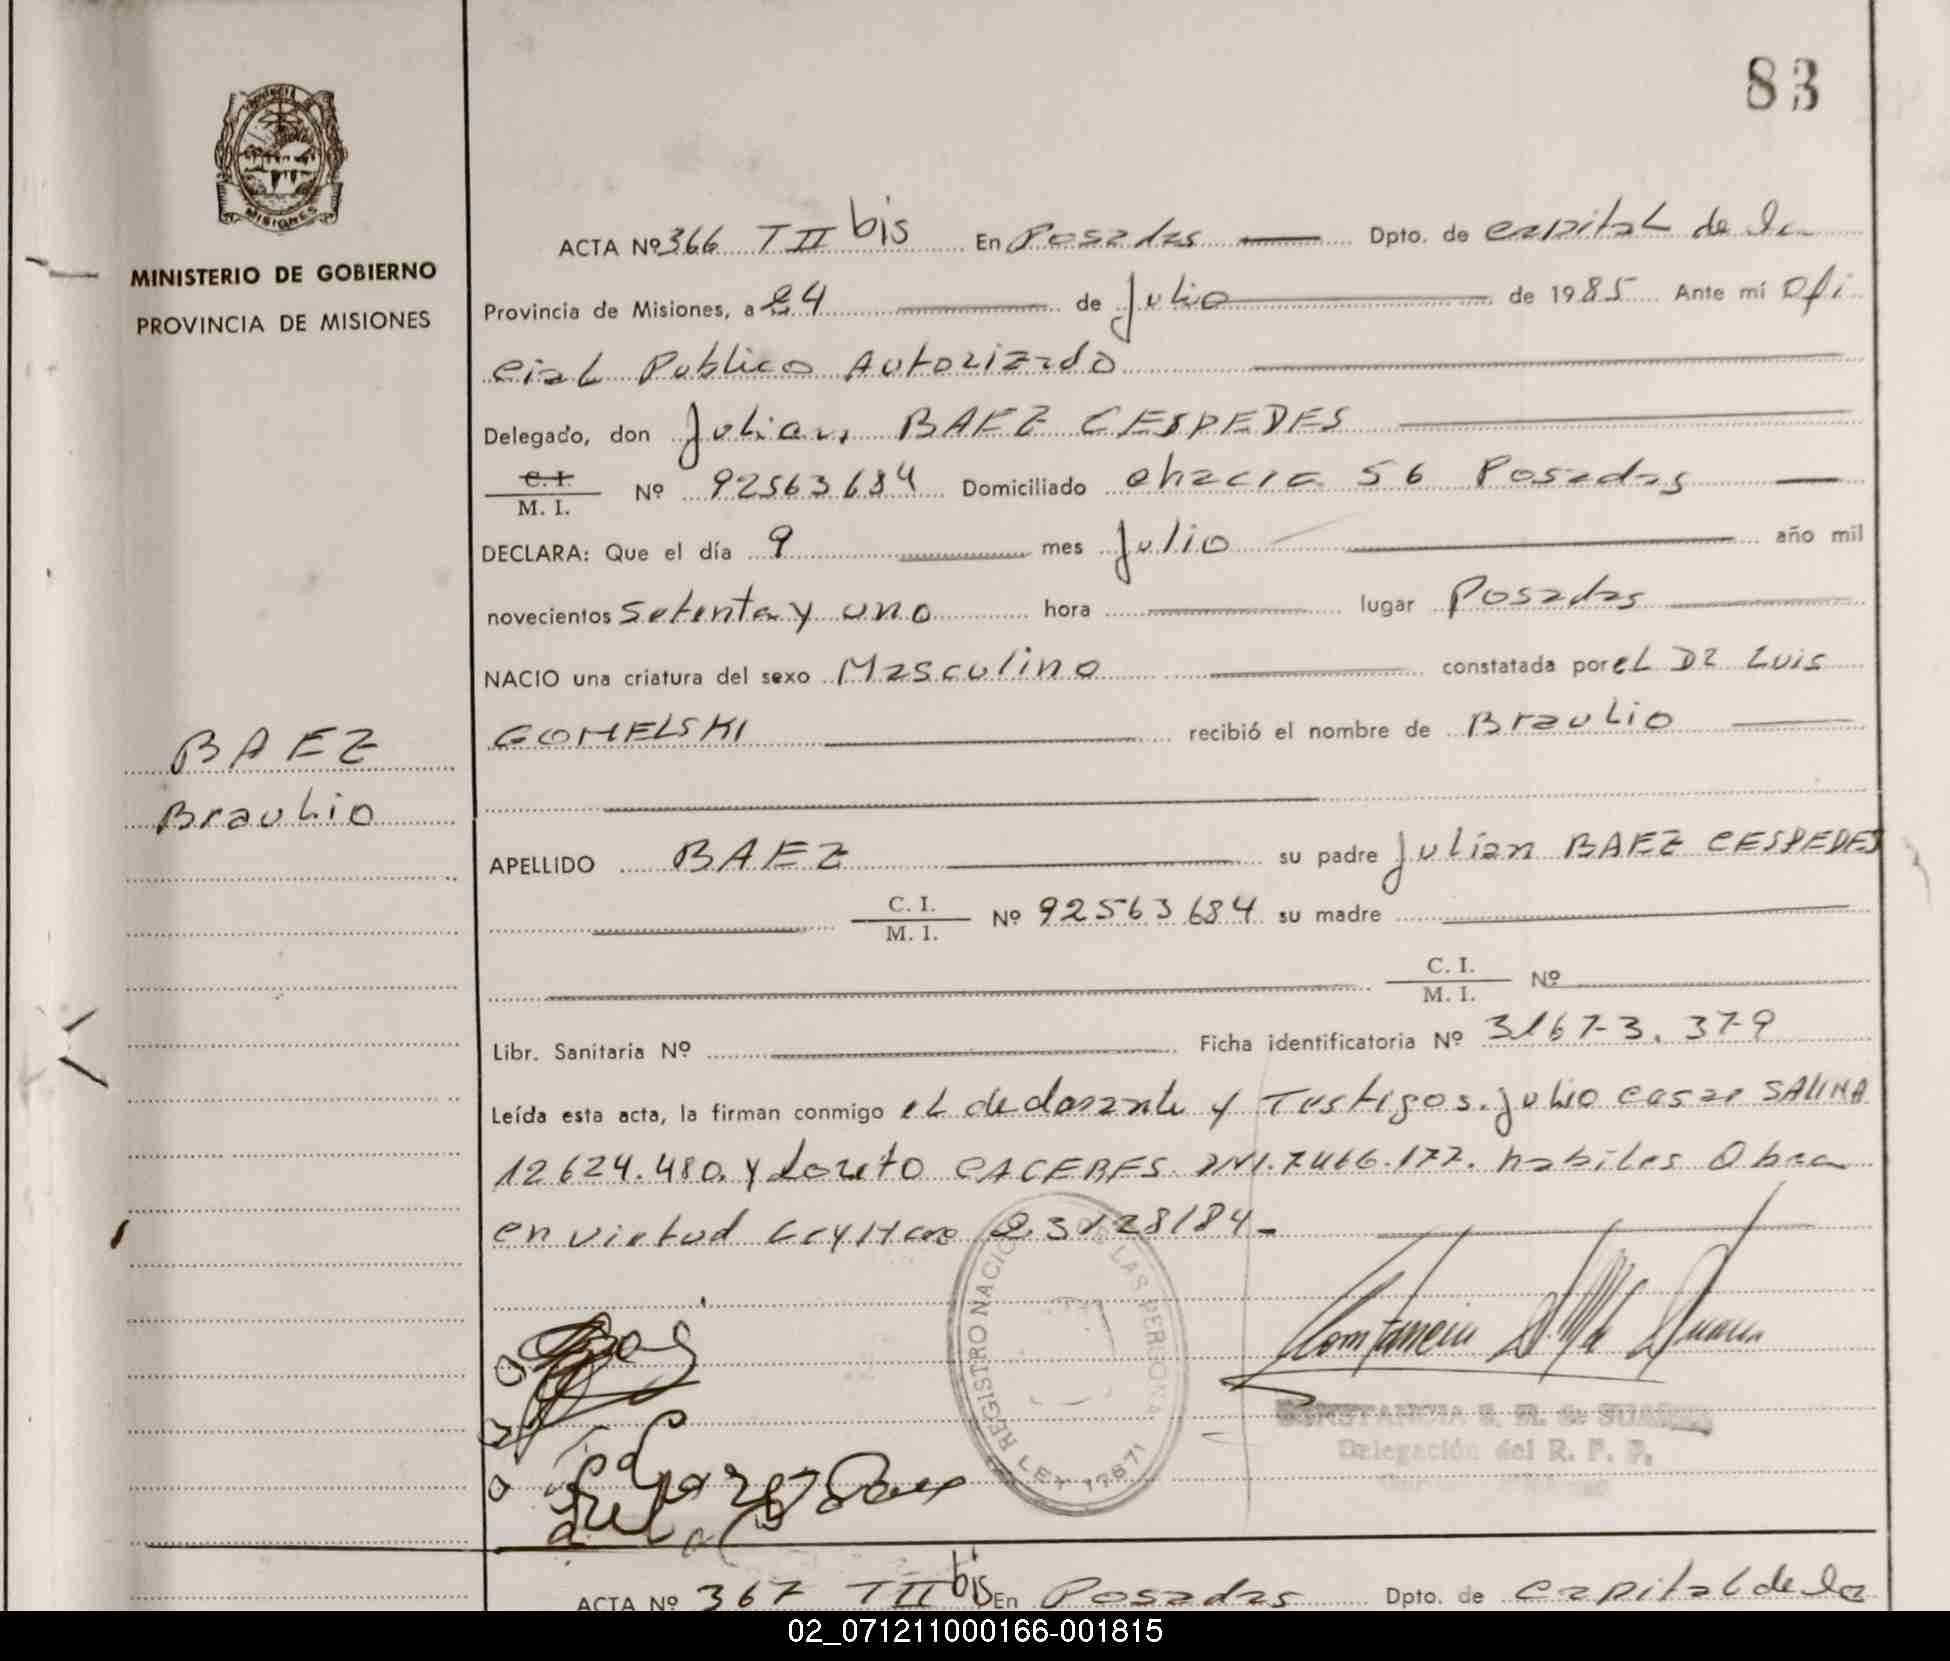 83
MINISTERIO DE GOBIERNO
PROVINCIA DE MISIONES
MISIONES
BAEZ
Braulio
ACTA Nº 366 T II bis En Posadas Dpto. de capital de la
Provincia de Misiones, a 24 de Julio de 1985 Ante mí Ofi
cial Publico Autorizado
Delegado, don Julian BAEZ CESPEDES
C. I. / M. I. Nº 92563684 Domiciliado chacra 56 Posadas
DECLARA: Que el día 9 mes Julio año mil
novecientos setenta y uno hora lugar Posadas
NACIO una criatura del sexo Masculino constatada por el DR Luis
GOMELSKI recibió el nombre de Braulio
APELLIDO BAEZ su padre Julian BAEZ CESPEDES
C. I. / M. I. Nº 92563684 su madre
C. I. / M. I. Nº
Libr. Sanitaria Nº Ficha identificatoria Nº 3167-3.379
Leída esta acta, la firman conmigo el declarante y Testigos. Julio Cesar SALINA
12624.480. y Loreto CACERES DNI. 7466.177. habiles Obra
en virtud 23128/84-
REGISTRO NACIO LAS PERSONA
LEY 17671
CONSTANCIA S. M. de SUAREZ
Delegación del R. P. P.
ACTA Nº 367 T II bis En Posadas Dpto. de capital de la
02_071211000166-001815